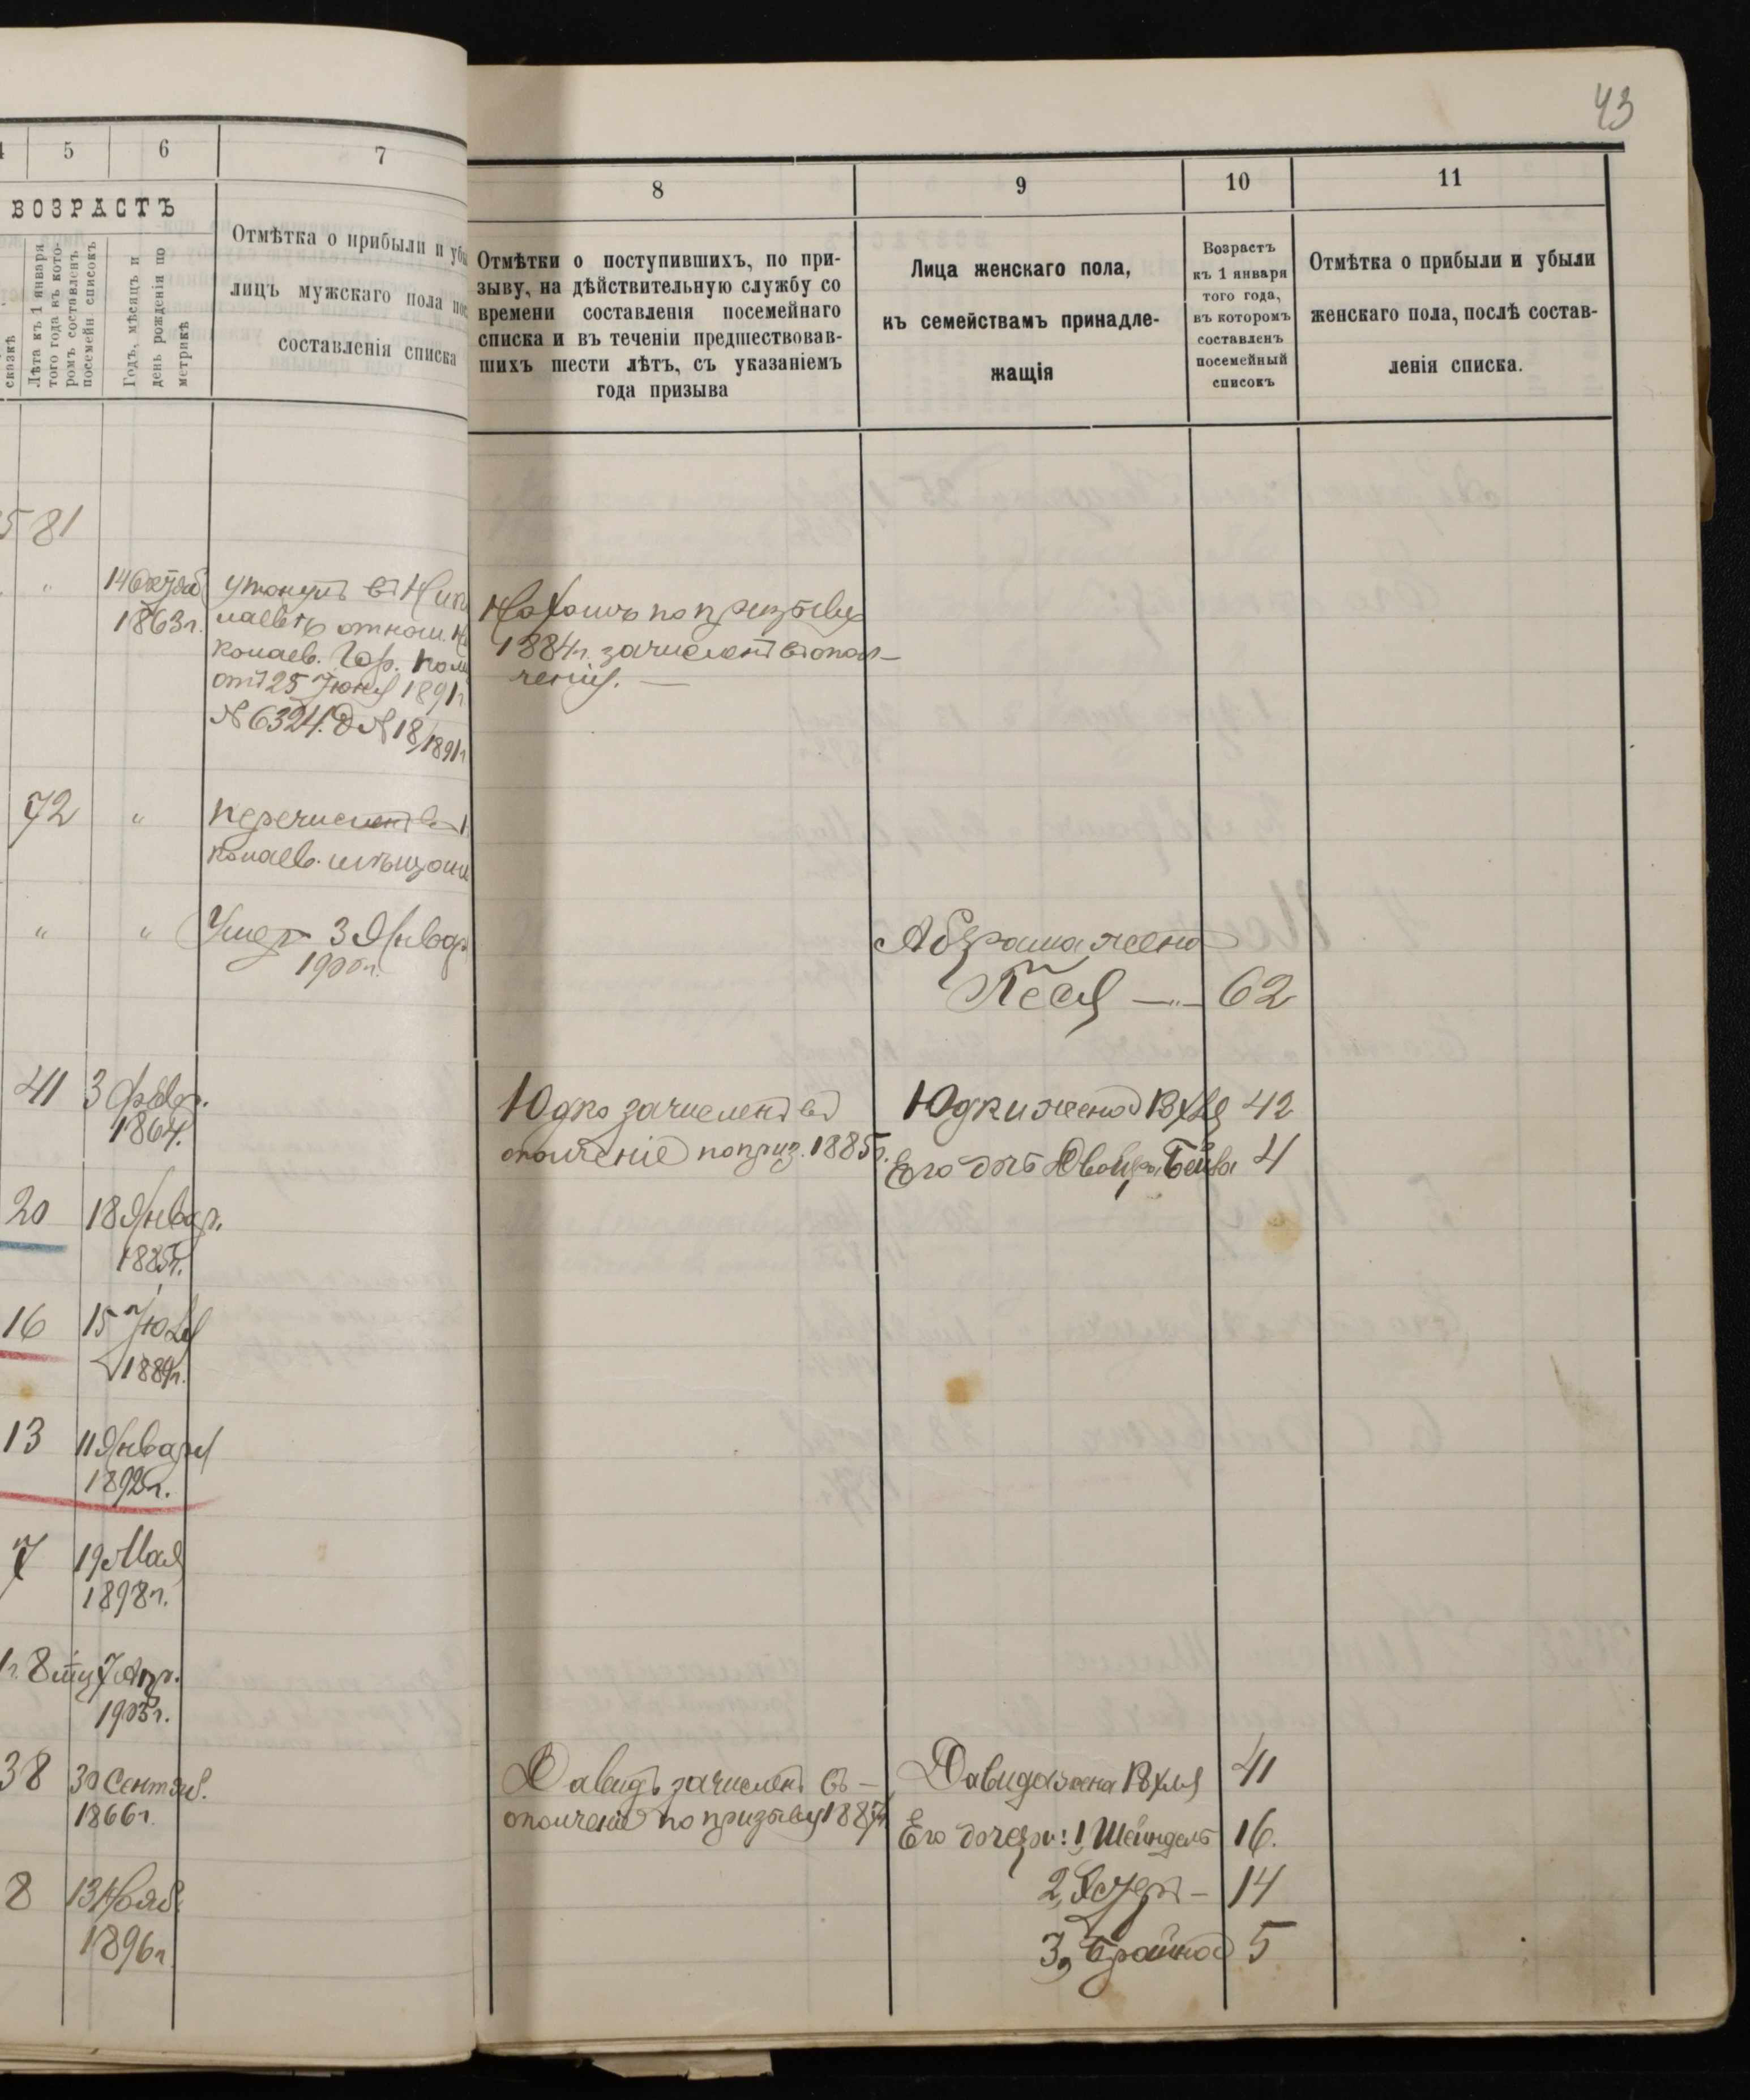 43
5
6
7
8
9
10
11
ВОЗРАСТЪ
сказкѣ
Лѣта къ 1 января
того года къ кото-
ромъ составленъ
посемейн списокъ
Годъ, мѣсяцъ и
день рожденія по
метрикѣ
Отмѣтка о прибыли и убы
лицъ мужскаго пола пос
составленія списка
Отмѣтки о поступившихъ, по при-
зыву, на дѣйствительную службу со
времени составленія посемейнаго
списка и въ теченіи предшествовав-
шихъ шести лѣтъ, съ указаніемъ
года призыва
Лица женскаго пола,
къ семействамъ принадле-
жащія
Возрастъ
къ 1 января
того года,
въ которомъ
составленъ
посемейный
списокъ
Отмѣтка о прибыли и убыли
женскаго пола, послѣ состав-
ленія списка.
5 81
" 14 Октяб.
1863 г.
утонулъ въ Нико
лаевѣ отнош. Ни
колаев. Гор. Пол
отъ 25 Июня 1891 г
№ 6324. Д № 18/1891 г
по призыву
1884 г. зачисленъ въ опол-
ченіе. —
72 "
перечисленъ въ Н
колаев. мѣщане
" "
Умер 3 Январ
1900 г.
Абрама жена
Песя —"— 62
41 3 Февр.
1864.
Юдко зачисленъ въ
ополченіе по приз. 1885 г.
Юдки жена 42
Его дочь Двойра Бейла 4
20 18 Январ.
1885 г.
16 15 Июля
1889 г.
13 11 Января
1892 г.
7 19 Мая
1898 г.
1 г. 8 мц 7 Апр.
1903 г.
38 30 Сентяб.
1866 г.
Давидъ зачисленъ въ —
ополченіе по призыву 1887 г
Давида жена 41
Его дочери: 1, Шейндель 16.
8 13 Нояб.
1896 г
2, Эстеръ — 14
3, Брайна 5